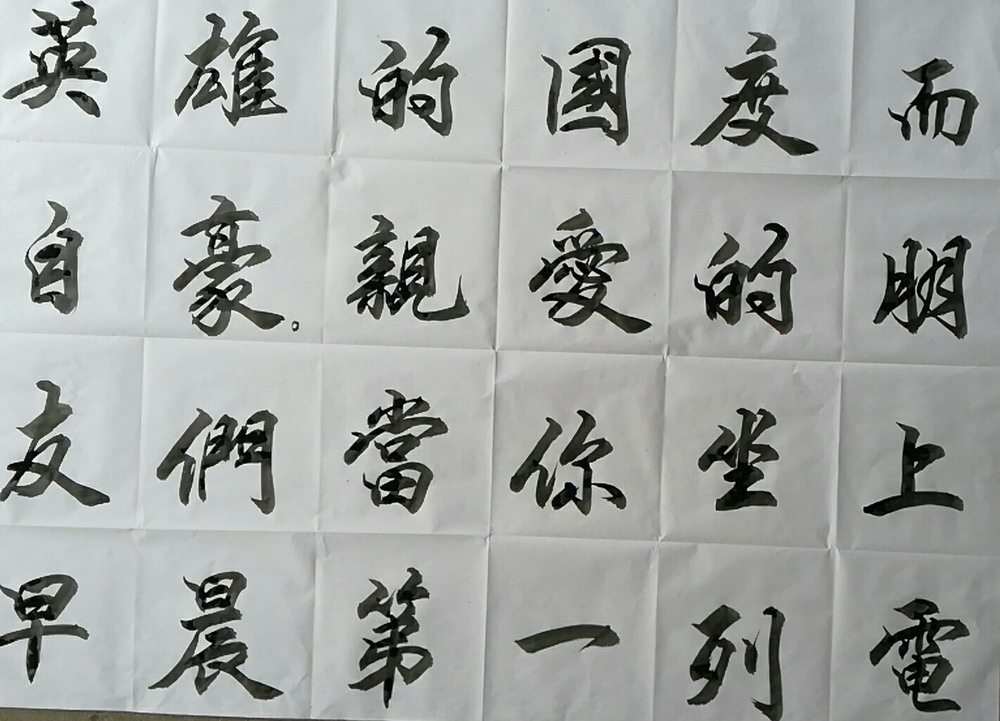 英雄的國度而
自豪。親愛的朋
友們當你坐上
早晨第一列電